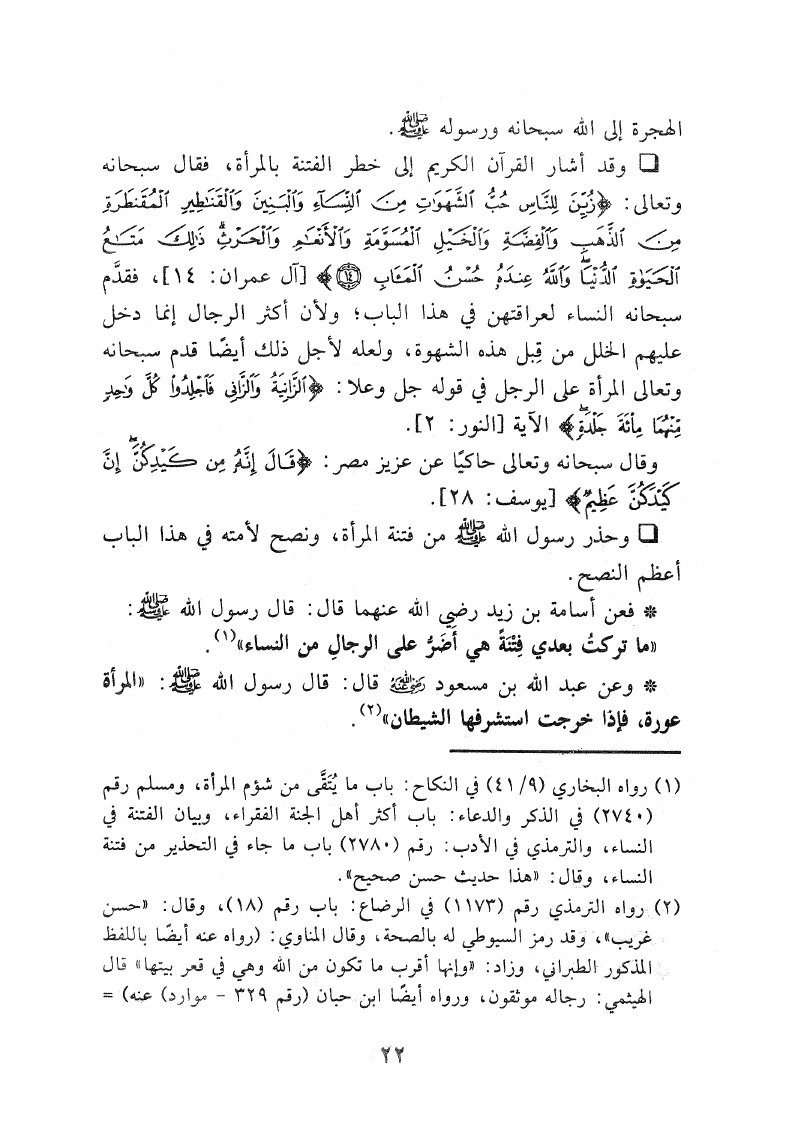 الهجرة إلى الله سبحانه ورسوله ﷺ.
❑ وقد أشار القرآن الكريم إلى خطر الفتنة بالمرأة، فقال سبحانه
وتعالى: ﴿زُيِّنَ لِلنَّاسِ حُبُّ ٱلشَّهَوَٰتِ مِنَ ٱلنِّسَآءِ وَٱلْبَنِينَ وَٱلْقَنَٰطِيرِ ٱلْمُقَنطَرَةِ
مِنَ ٱلذَّهَبِ وَٱلْفِضَّةِ وَٱلْخَيْلِ ٱلْمُسَوَّمَةِ وَٱلْأَنْعَٰمِ وَٱلْحَرْثِۗ ذَٰلِكَ مَتَٰعُ
ٱلْحَيَوٰةِ ٱلدُّنْيَاۖ وَٱللَّهُ عِندَهُۥ حُسْنُ ٱلْمَـَٔابِ ١٤﴾ [آل عمران: ١٤]، فقدَّم
سبحانه النساء لعراقتهن في هذا الباب؛ ولأن أكثر الرجال إنما دخل
عليهم الخلل من قِبل هذه الشهوة، ولعله لأجل ذلك أيضًا قدم سبحانه
وتعالى المرأة على الرجل في قوله جل وعلا: ﴿ٱلزَّانِيَةُ وَٱلزَّانِى فَٱجْلِدُوا۟ كُلَّ وَٰحِدٍ
مِّنْهُمَا مِا۟ئَةَ جَلْدَةٍۖ﴾ الآية [النور: ٢].
وقال سبحانه وتعالى حاكيًا عن عزيز مصر: ﴿قَالَ إِنَّهُۥ مِن كَيْدِكُنَّۖ إِنَّ
كَيْدَكُنَّ عَظِيمٌ﴾ [يوسف: ٢٨].
❑ وحذر رسول الله ﷺ من فتنة المرأة، ونصح لأمته في هذا الباب
أعظم النصح.
* فعن أسامة بن زيد رضي الله عنهما قال: قال رسول الله ﷺ:
«ما تركتُ بعدي فِتْنَةً هي أَضَرُّ على الرجالِ من النساء»(١).
* وعن عبد الله بن مسعود رضي الله عنه قال: قال رسول الله ﷺ: «المرأة
عورة، فإذا خرجت استشرفها الشيطان»(٢).
(١) رواه البخاري (٤١/٩) في النكاح: باب ما يُتَّقَى من شؤم المرأة، ومسلم رقم
(٢٧٤٠) في الذكر والدعاء: باب أكثر أهل الجنة الفقراء، وبيان الفتنة في
النساء، والترمذي في الأدب: رقم (٢٧٨٠) باب ما جاء في التحذير من فتنة
النساء، وقال: «هذا حديث حسن صحيح».
(٢) رواه الترمذي رقم (١١٧٣) في الرضاع: باب رقم (١٨)، وقال: «حسن
غريب»، وقد رمز السيوطي له بالصحة، وقال المناوي: (رواه عنه أيضًا باللفظ
المذكور الطبراني، وزاد: «وإنها أقرب ما تكون من الله وهي في قعر بيتها» قال
الهيثمي: رجاله موثقون، ورواه أيضًا ابن حبان (رقم ٣٢٩ - موارد) عنه) =
٢٢